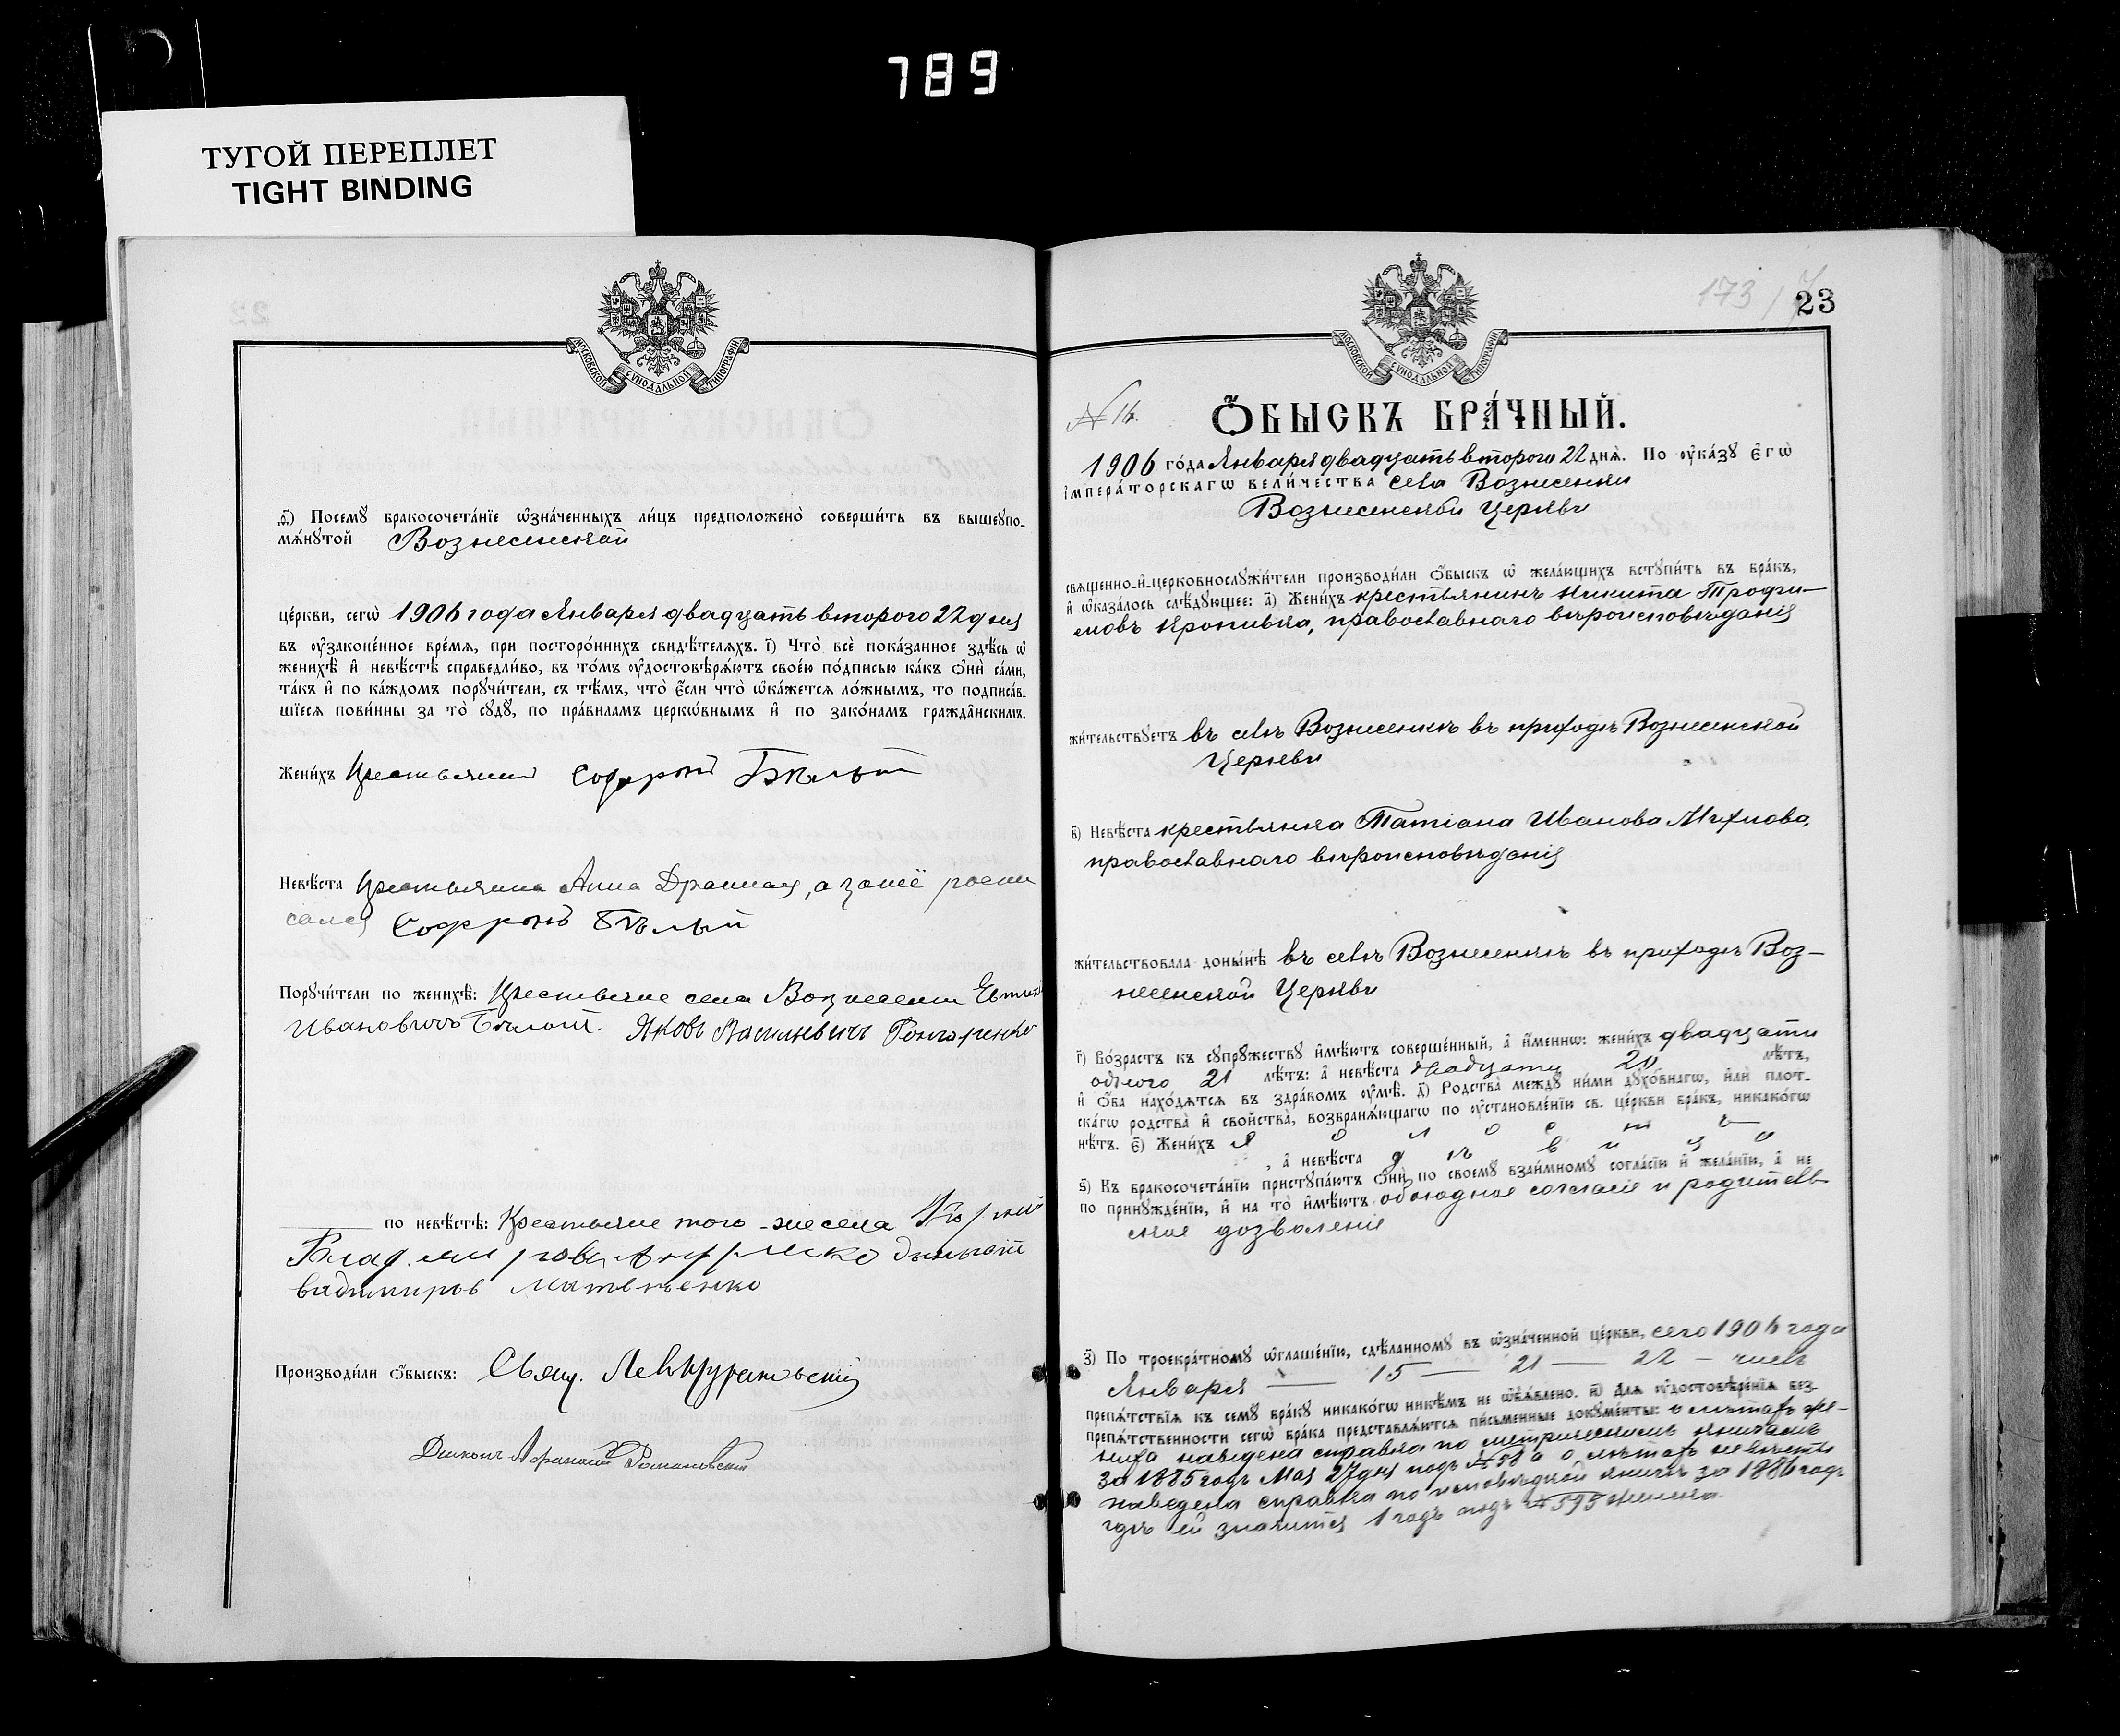 789
ТУГОЙ ПЕРЕПЛЕТ
TIGHT BINDING
МОСКОВСКОЙ СѴНОДАЛЬНОЙ ТИПОГРАФІИ
ѳ҃) Посемꙋ̀ бракосочета́нїе ѡ҆зна́ченныхъ ли́цъ предположено̀ соверши́ть въ вышеꙋпо-
мѧ́нꙋтой Вознесенской
це́ркви, сегѡ̀ 1906 года Января двадцать второго 22 дня
въ ᲂу҆зако́ненное вре́мѧ, при посторо́ннихъ свидѣ́телѧхъ. і҃) Что̀ всѐ пока́занное здѣ́сь ѡ҆
женихѣ̀ и҆ невѣ́стѣ справедли́во, въ то́мъ ᲂу҆достовѣрѧ́ютъ свое́ю по́дписью ка́къ ѻ҆нѝ са́ми,
та́къ и҆ по ка́ждомъ порꙋчи́тели, съ тѣ́мъ, что̀ є҆́сли что̀ ѡ҆ка́жетсѧ ло́жнымъ, то подписа́в-
шїесѧ пови́нны за то̀ сꙋдꙋ̀, по пра́виламъ церко́внымъ и҆ по зако́намъ гражда̑нскимъ.
Жени́хъ Крестьянин Софрон Белый
Невѣ́ста Крестьянка Анна Драная, а за неё роспи
сался Софронъ Бѣлый
Порꙋчи́тели по женихѣ̀: Крестьяне села Вознесенки Евтихи
Ивановичъ Бѣлой. Яковъ Васильевичъ Гончаренко
по невѣ́стѣ: Крестьяне того-же села
Матвѣенко
Производи́ли ѻ҆́быскъ: Свящ. Лев
Диконъ Афанасій Романовскій
173
23
МОСКОВСКОЙ СѴНОДАЛЬНОЙ ТИПОГРАФІИ
№ 16.
Ѻ҆БЫСКЪ БРА́ЧНЫЙ.
1906 го́да Января двадцать второго 22 днѧ̀. По ᲂу҆ка́зꙋ є҆гѡ̀
і҆мпера́торскагѡ вели́чества села Вознесенки
Вознесенской Церкви
свѧще́нно-и҆-церковнослꙋжи́тели производи́ли ѻ҆́быскъ ѡ҆ жела́ющихъ встꙋпи́ть въ бра́къ,
и҆ ѡ҆каза́лось слѣ́дꙋющее: а҃) Жени́хъ крестьянинъ Никита Трофи-
мовъ Кропивка, православнаго вѣроисповѣданія
жи́тельствꙋетъ въ селѣ Вознесенкѣ въ приходѣ Вознесенской
Церкви
в҃) Невѣ́ста крестьянка Татіана Иванова Михнова,
православнаго вѣроисповѣданія
жи́тельствовала доны́нѣ въ селѣ Вознесенкѣ въ приходѣ Воз-
несенской Церкви
г҃) Во́зрастъ къ сꙋпрꙋ́жествꙋ и҆мѣ́ютъ соверше́нный, а҆ и҆́меннѡ: жени́хъ двадцати
одного 21 лѣ́тъ: а҆ невѣ́ста двадцати 20 лѣ́тъ,
и҆ ѻ҆́ба нахо́дѧтсѧ въ здра́вомъ ᲂу҆мѣ̀. д҃) Родства̀ междꙋ̀ ни́ми дꙋхо́внагѡ, и҆лѝ пло́т-
ска́гѡ родства̀ и҆ сво́йства, возбранѧ́ющагѡ по ᲂу҆становле́нїю св. це́ркви бра́къ, никако́гѡ
нѣ́тъ. є҃) Жени́хъ холостъ
, а҆ невѣ́ста дѣвица
ѕ҃) Къ бракосочета́нїю пристꙋпа́ютъ ѻ҆нѝ по своемꙋ̀ взаи́мномꙋ согла́сїю и҆ жела́нїю, а҆ не
по принꙋжде́нїю, и҆ на то̀ и҆мѣ́ютъ обоюдное согласіе и родитель-
ское дозволеніе
з҃) По троекра́тномꙋ ѡ҆глаше́нїю, сдѣ́ланномꙋ въ ѡ҆зна́ченной це́ркви, сего 1906 года
Января — 15 — 21 — 22 — числъ
препѧ́тствїѧ къ семꙋ̀ бра́кꙋ никако́гѡ никѣ́мъ не ѡ҆б̾ѧ́влено. и҃) Длѧ ᲂу҆достовѣре́нїѧ без-
препѧ́тственности сегѡ̀ бра́ка представлѧ́ютсѧ пи́сьменные докꙋме́нты: о лѣтахъ же-
ниха наведена справка по метрическимъ книгамъ
за 1885 годъ Мая 27 дня подъ № 58 а о лѣтахъ невѣсты
наведена справка по исповѣдной книгѣ за 1886 годъ
гдѣ ей значится 1 годъ подъ № 595